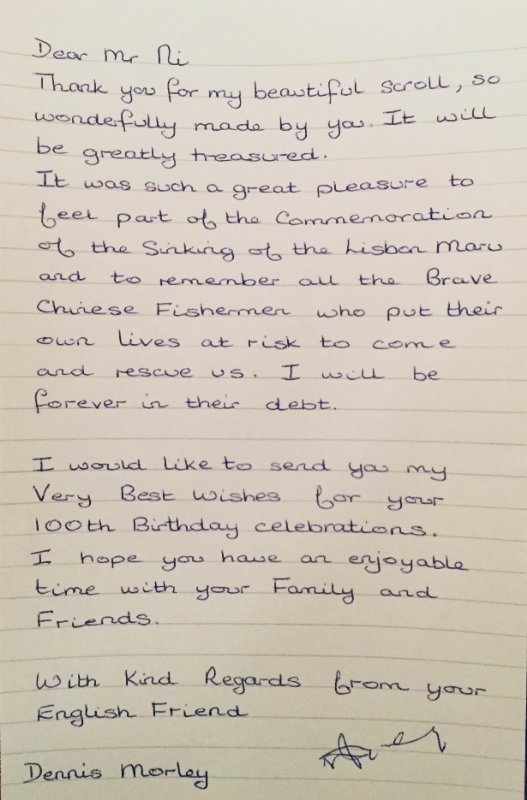 Dear Mr Ni
Thank you for my beautiful scroll, so
wonderfully made by you. It will
be greatly treasured.
It was such a great pleasure to
feel part of the Commemoration
of the Sinking of the Lisbon Maru
and to remember all the Brave
Chinese Fishermen who put their
own lives at risk to come
and rescue us. I will be
forever in their debt.
I would like to send you my
Very Best Wishes for your
100th Birthday celebrations.
I hope you have an enjoyable
time with your Family and
Friends.
With Kind Regards from your
English Friend
Dennis Morley